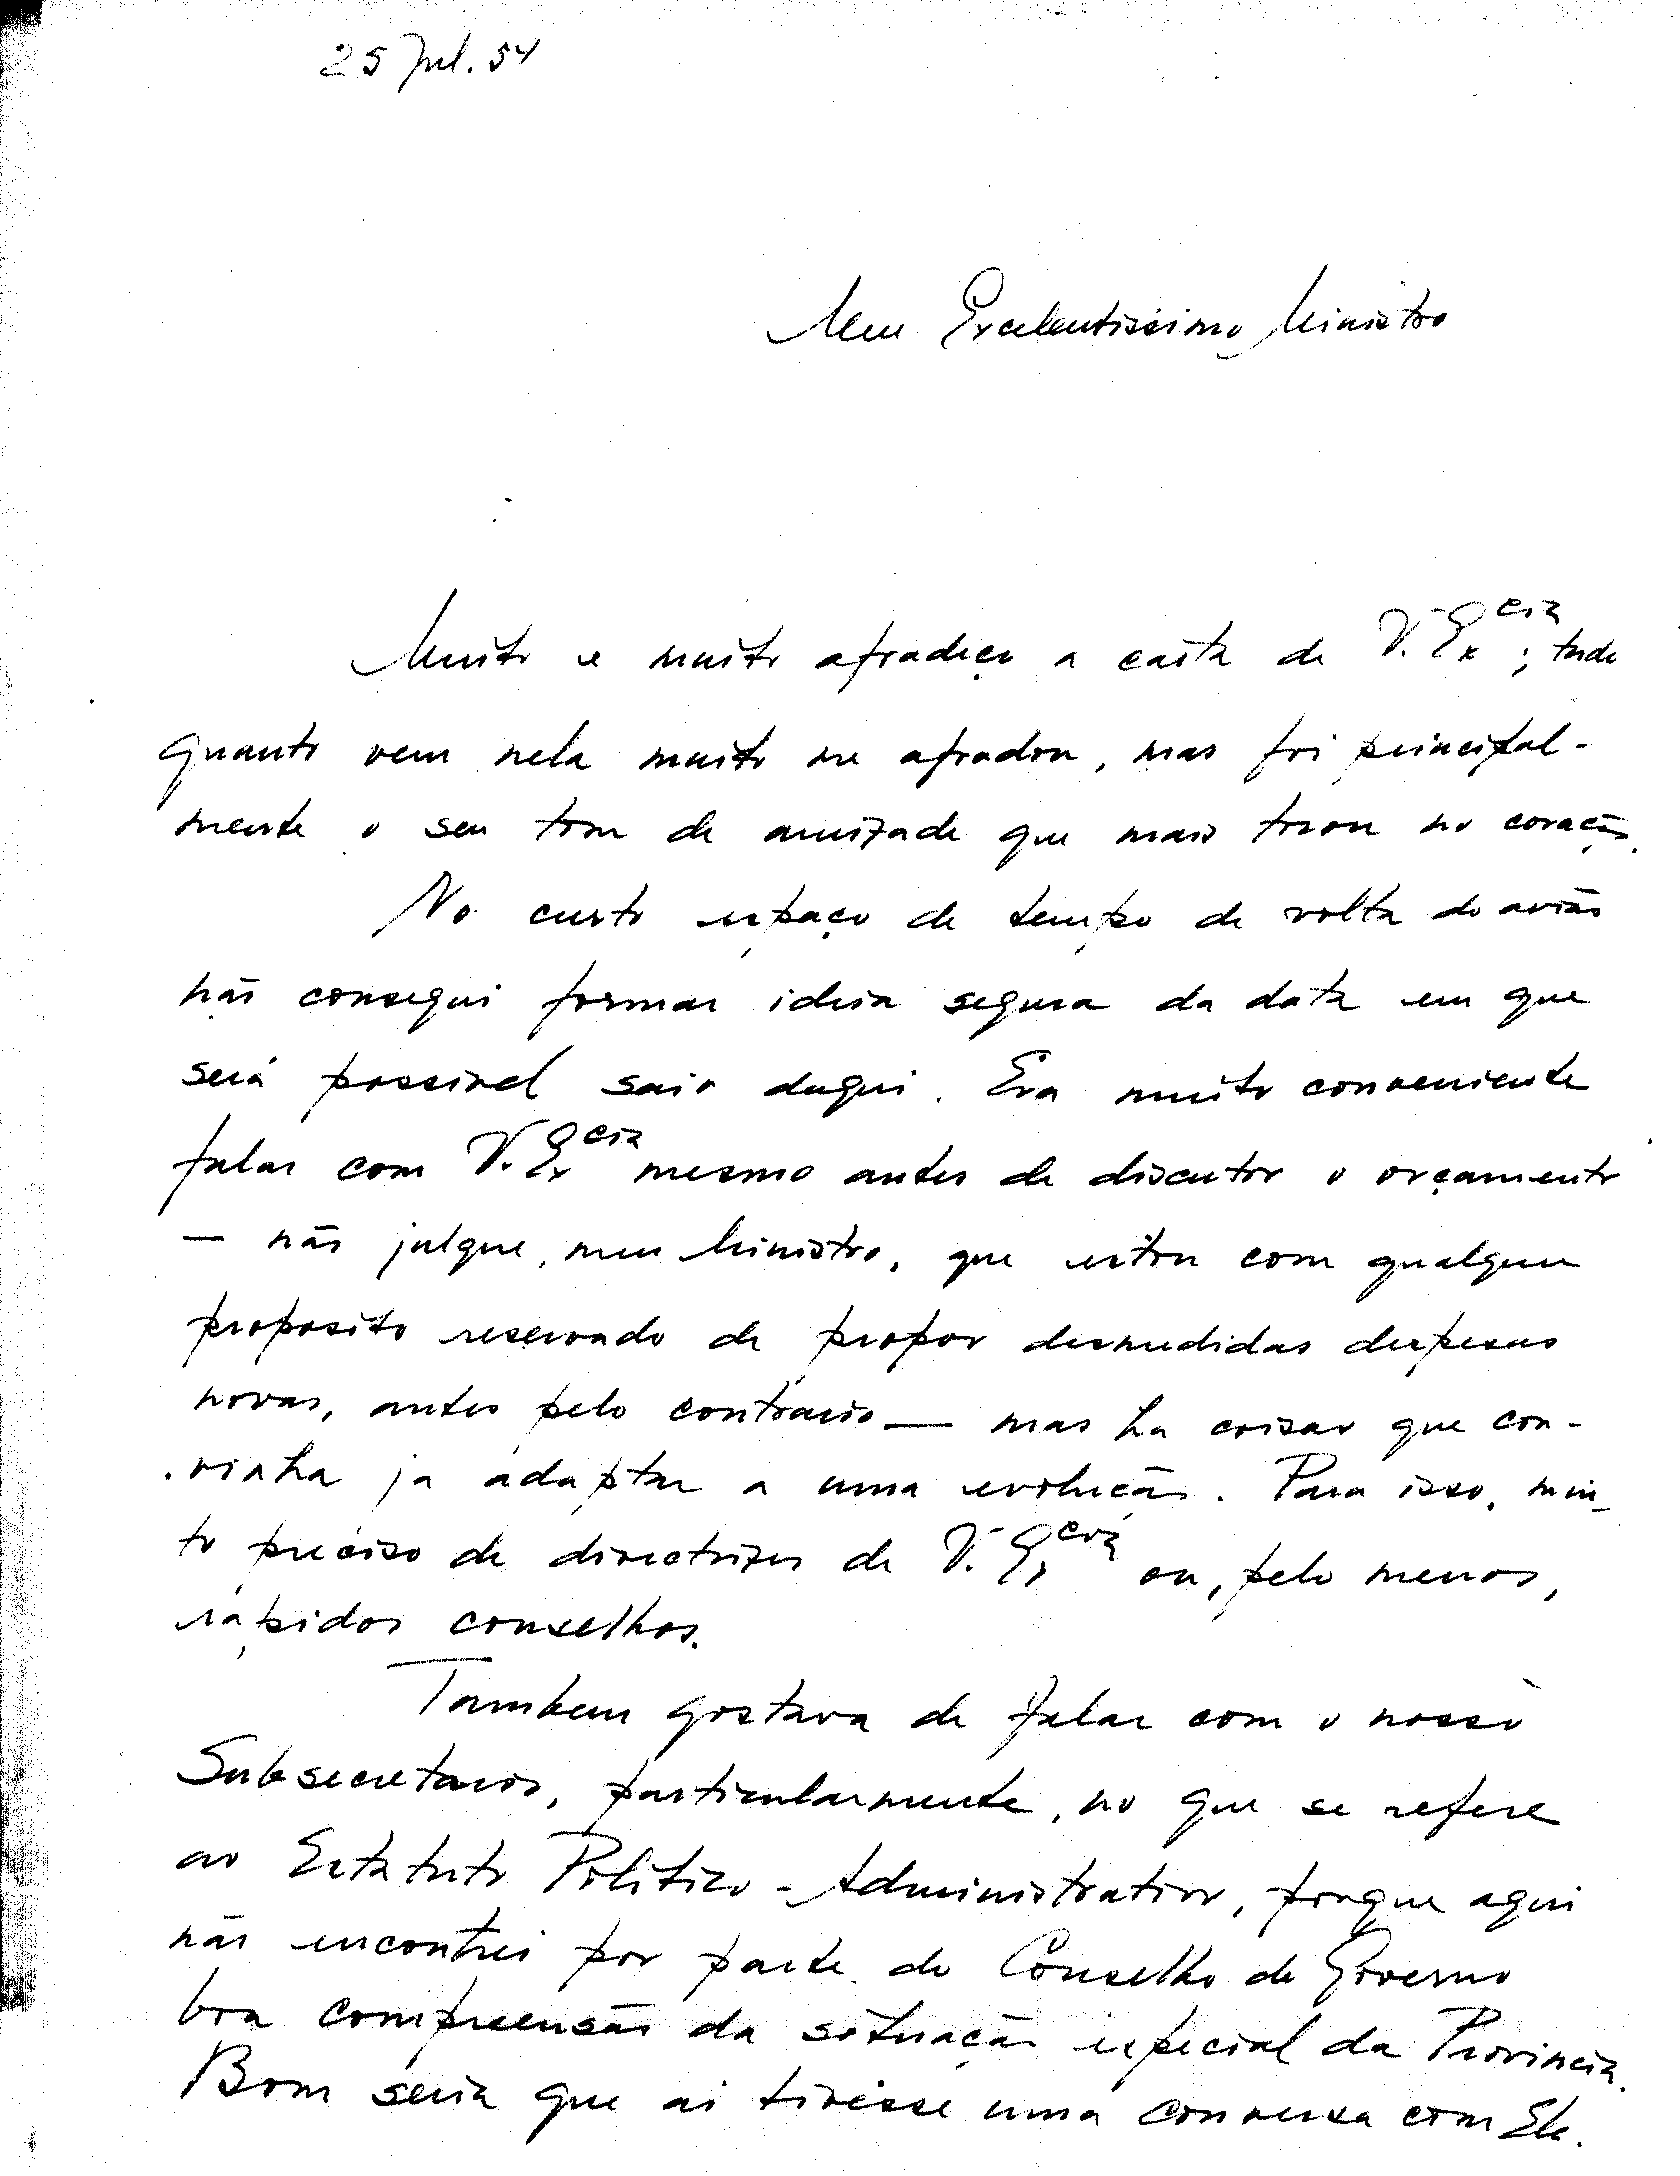 25 Jul. 54
Meu Excelentissimo Ministro
Muito e muito agradeço a carta de V. Ex^cia; tudo
quanto vem nela muito me agradou, mas foi principal-
mente o seu tom de amizade que mais tocou no coração.
No curto espaço de tempo de volta do avião
não consegui formar ideia segura da data em que
será possivel sair daqui. Era muito conveniente
falar com V. Ex^cia mesmo antes de discutir o orçamento
— não julgue, meu Ministro, que estou com qualquer
proposito reservado de propor desmedidas despesas
novas, antes pelo contrario — mas ha coisas que con-
vinha ja adaptar a uma evolução. Para isso, mui-
to preciso de directrizes de V. Ex^cia ou, pelo menos,
rápidos conselhos.
Tambem gostava de falar com o nosso
Subsecretario, particularmente, no que se refere
ao Estatuto Politico-Administrativo, porque aqui
não encontrei por parte do Conselho de Governo
boa compreensão da situação especial da Provincia.
Bom seria que ai tivesse uma conversa com Ele.